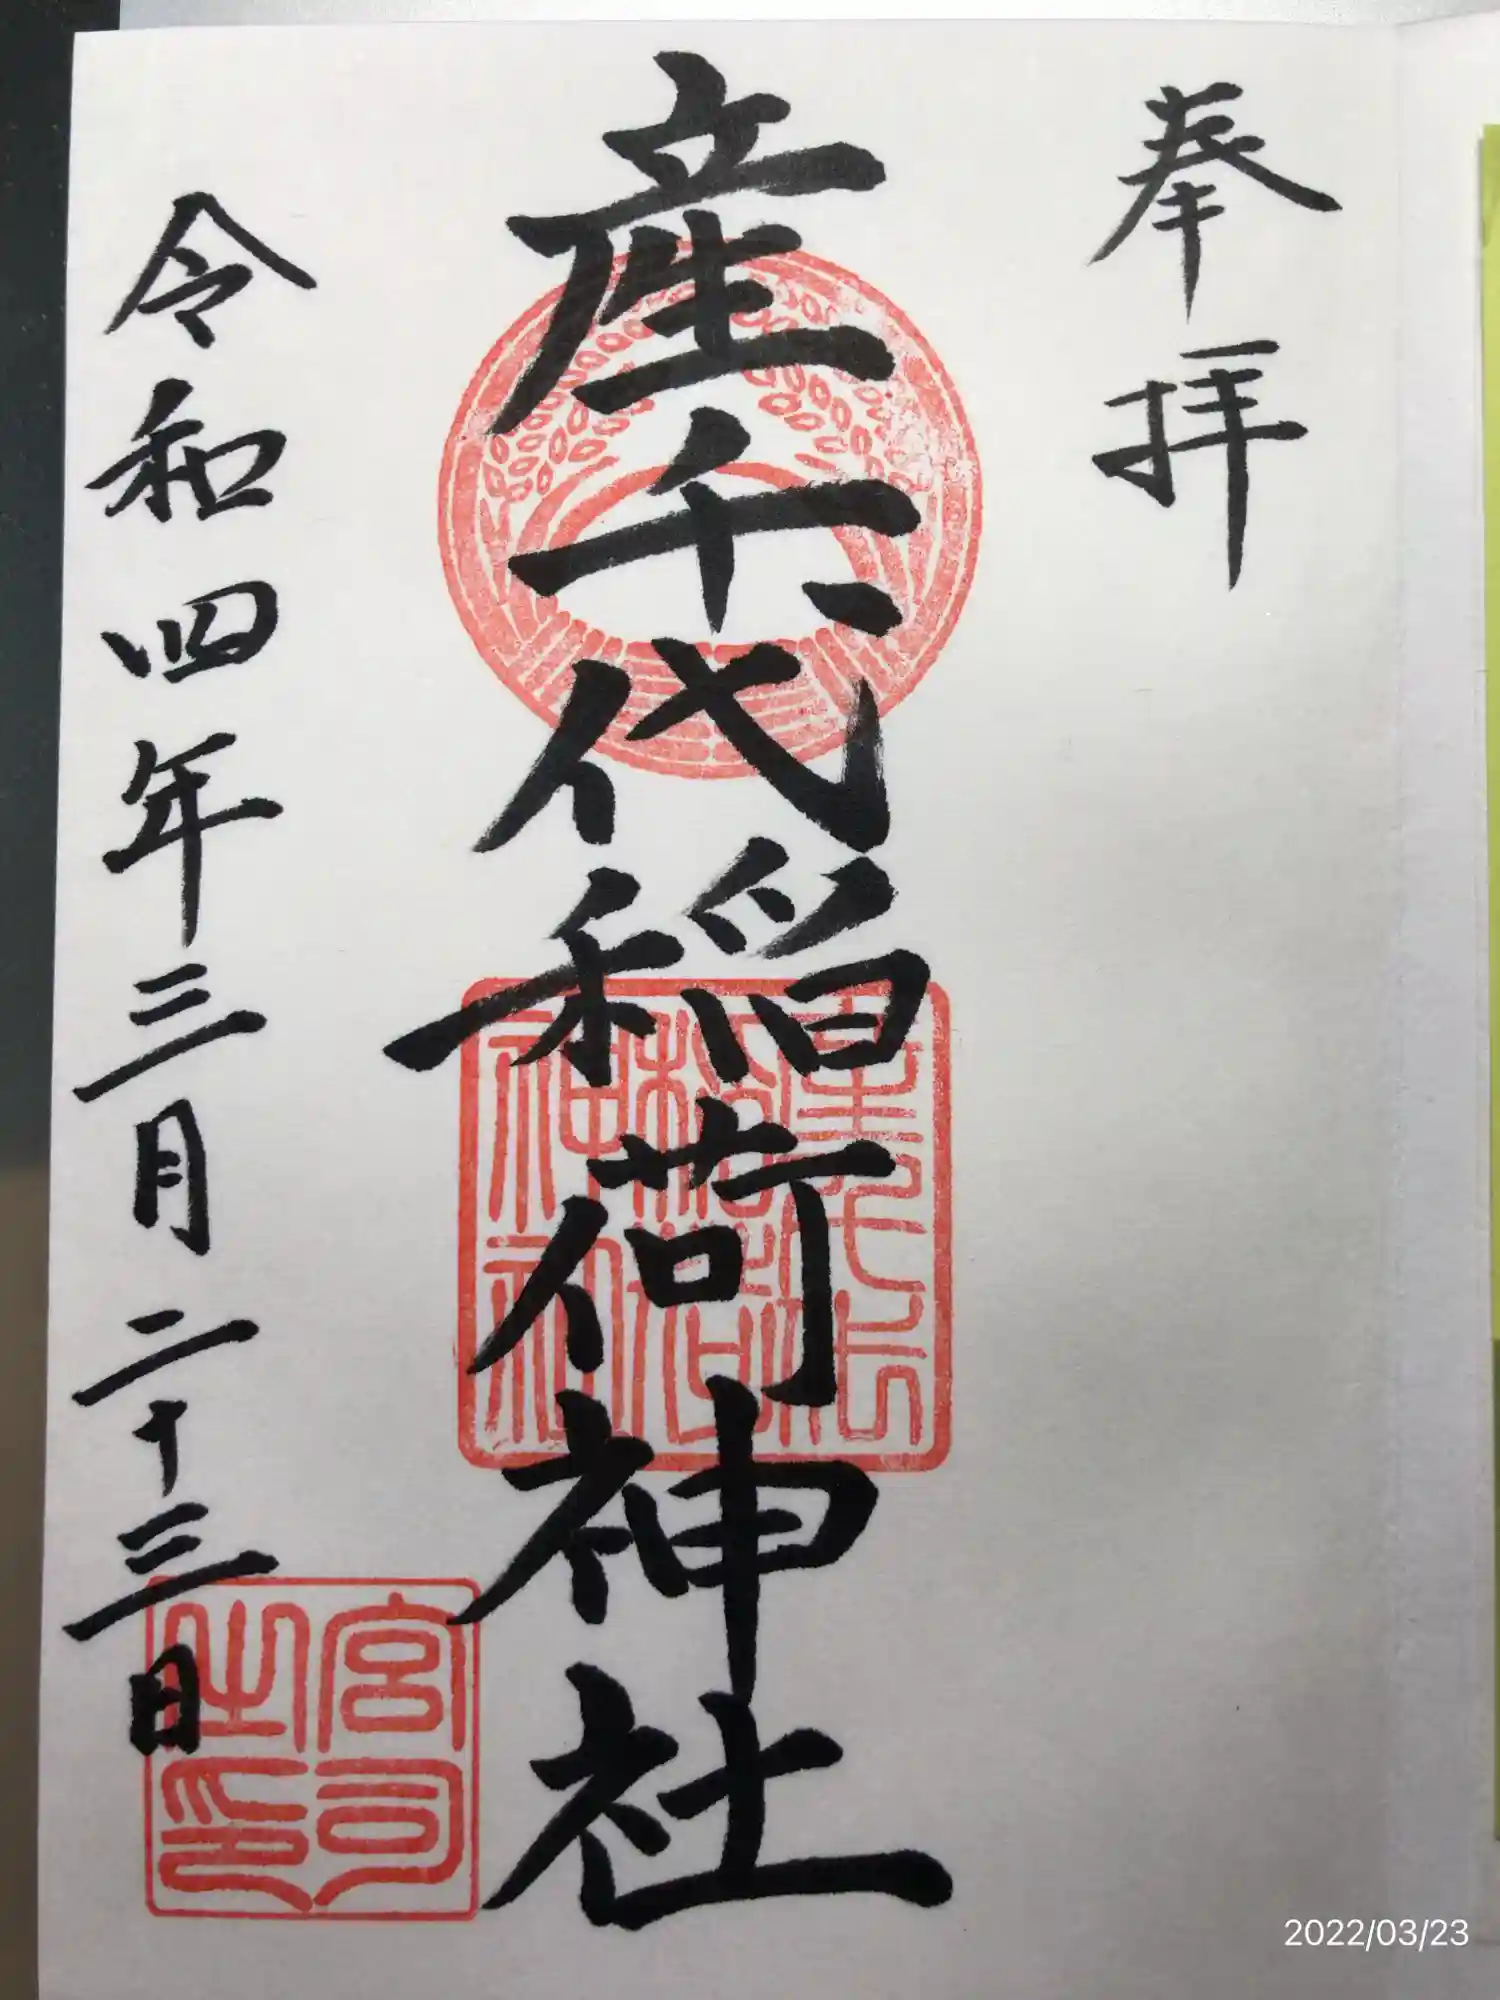 奉拝
産千代稲荷神社
令和四年三月二十三日
稲荷
神社
宮司
之印
2022/03/23